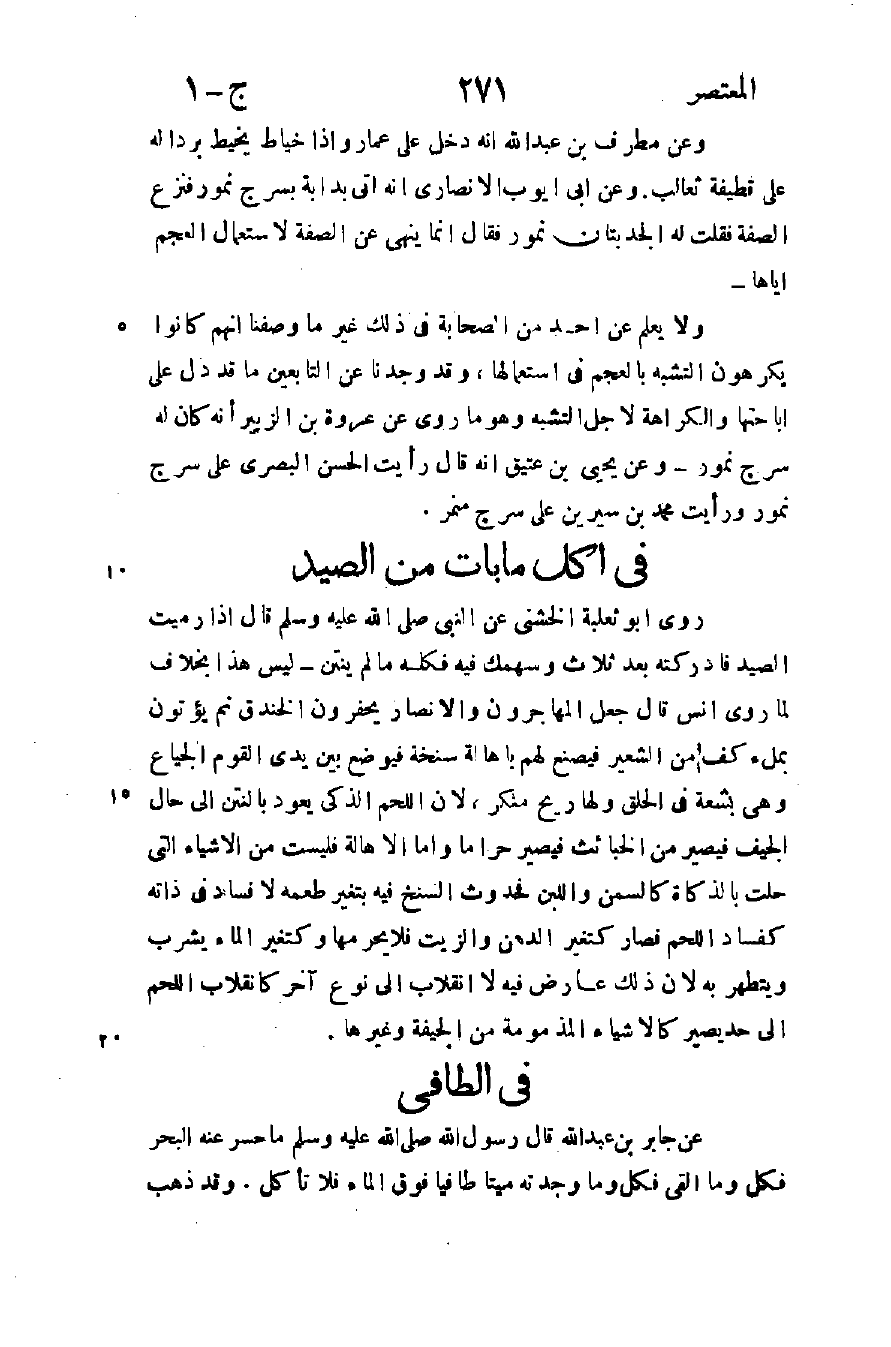 المعتصر ٢٧١ ج-١
وعن مطرف بن عبدالله انه دخل على عمار واذا خياط يخيط برداله
على قطيفة ثعالب. وعن ابى ايوب الانصارى انه اتى بدابة بسرج نمور فنزع
الصفة فقلت له الجديتان نمور فقال انما ينهى عن الصفة لاستعمال العجم
اياها –
ولا يعلم عن احد من الصحابة فى ذلك غير ما وصفنا انهم كانوا ٥
يكرهون التشبه بالعجم فى استعمالها، وقد وجدنا عن التابعين ما قد دل على
اباحتها والكراهة لاجل التشبه وهو ما روى عن عروة بن الزبير أنه كان له
سرج نمور – وعن يحيى بن عتيق انه قال رأيت الحسن البصرى على سرج
نمور ورأيت محمد بن سيرين على سرج منمر.
فى اكل مابات من الصيد ١٠
روى ابو ثعلبة الخشنى عن النبى صلى الله عليه وسلم قال اذا رميت
الصيد فادركته بعد ثلاث وسهمك فيه فكله مالم ينتن – ليس هذا بخلاف
لما روى انس قال جعل المهاجرون والانصار يحفرون الخندق ثم يؤتون
بملء كف من الشعير فيصنع لهم باهالة سنخة فيوضع بين يدى القوم الجياع
وهى بشعة فى الحلق ولها ريح منكر، لان اللحم الذكى يعود بالنتن الى حال ١٥
الجيف فيصير من الخبائث فيصير حراما واما الاهالة فليست من الاشياء التى
حلت بالذكاة كالسمن واللبن فحدوث السنخ فيه بتغير طعمه لا فساد فى ذاته
كفساد اللحم فصار كتغير الدهن والزيت فلايحرمها وكتغير الماء يشرب
ويتطهر به لان ذلك عارض فيه لا انقلاب الى نوع آخر كانقلاب اللحم
الى حد يصير كالاشياء المذمومة من الجيفة وغيرها. ٢٠
فى الطافى
عن جابر بن عبدالله قال رسول الله صلى الله عليه وسلم ماحسر عنه البحر
فكل وما القى فكل وما وجدته ميتا طافيا فوق الماء فلا تأكل. وقد ذهب